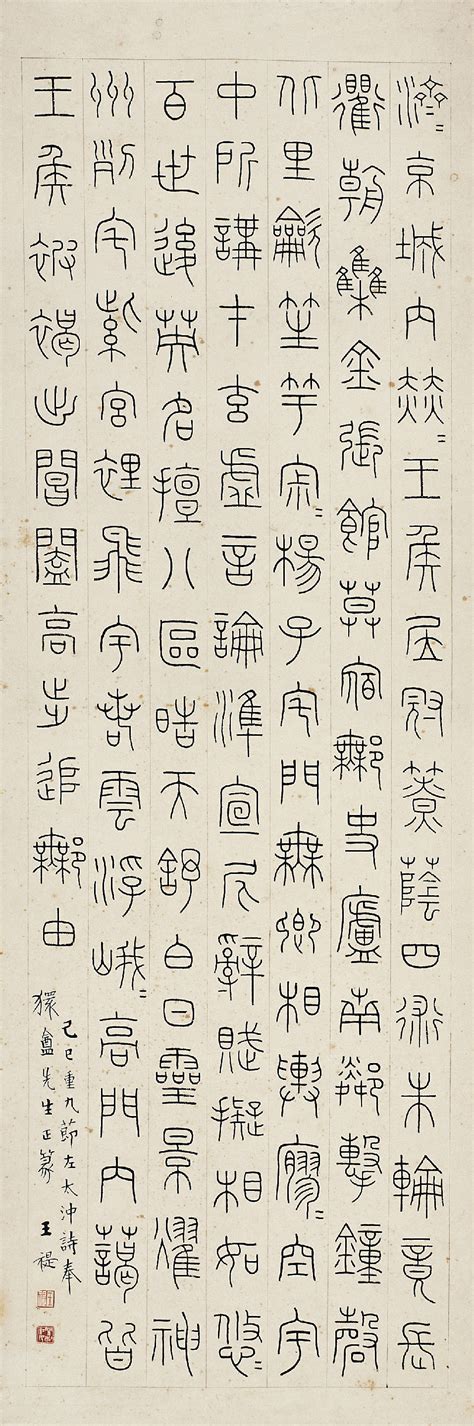 濟〻京城內赫〻王侯居冠蓋蔭四術朱輪竟長
衢朝集金張館莫宿鄦史廬南鄰擊鐘磬
北里龡笙竽寂〻楊子宅門無卿相輿寥〻空宇
中所講在玄虛言論準宣尼辭賦擬相如悠〻
百世後英名擅八區皓天舒白日靈景耀神
州列宅紫宮裡飛宇若雲浮峨〻高門內藹皆
王侯被褐出閶闔高步追鄦由
己巳重九節左太沖詩奉
獧盦先生正篆 王禔